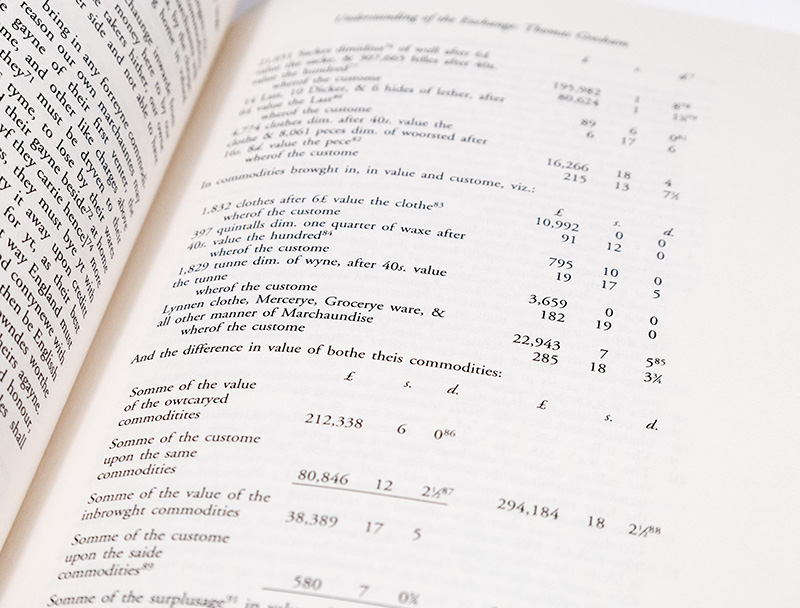 bring in any forreyne commod
reason our own marchaunts may
gayne of their first venter
and other like charges above
they⁷¹ must be dryven to their
tyme, to lose by their
their gayne beside⁷². at home
yf they carrie hence]⁷⁴ more
they must bye yt with
it away upon credit
for yt, as their best
way England must
contynewe with
then be English
worthe
theirs agayne.
honour,
shall
Understanding of the Exchange: Thomas Gresham
£ s. d.
value the sacke, &
value the hundred
wherof the custome 195,982 1
14 Last, 10 Dicker, & 6 hides of lether, after 80,624 1
value the Last⁸⁰ 89 6 0
wherof the custome 6 17 6
4,774 clothes dim. after 40s. value the
clothe & 8,061 peces dim. of woorsted after
16s. 8d. value the pece⁸² 16,266 18 4
wherof the custome 215 13 7½
In commodities browght in, in value and custome, viz.:
£ s. d.
1,832 clothes after 6£ value the clothe⁸³ 10,992 0 0
wherof the custome 91 12 0
397 quintalls dim. one quarter of waxe after
40s. value the hundred⁸⁴ 795 10 0
wherof the custome 19 17 5
1,829 tunne dim. of wyne, after 40s. value
the tunne 3,659 0 0
wherof the custome 182 19 0
Lynnen clothe, Mercerye, Grocerye ware, &
all other manner of Marchaundise 22,943 7 5⁸⁵
wherof the custome 285 18 3¾
And the difference in value of bothe theis commodities:
£ s. d. £ s. d.
Somme of the value
of the owtcaryed
commoditites 212,338 6 0⁸⁶
Somme of the custome
upon the same
commodities 80,846 12 2½⁸⁷ 294,184 18 2½⁸⁸
Somme of the value of the
inbrowght commodities 38,389 17 5
Somme of the custome
upon the saide
commodities⁸⁹ 580 7 0¾
Somme of the surplusage in